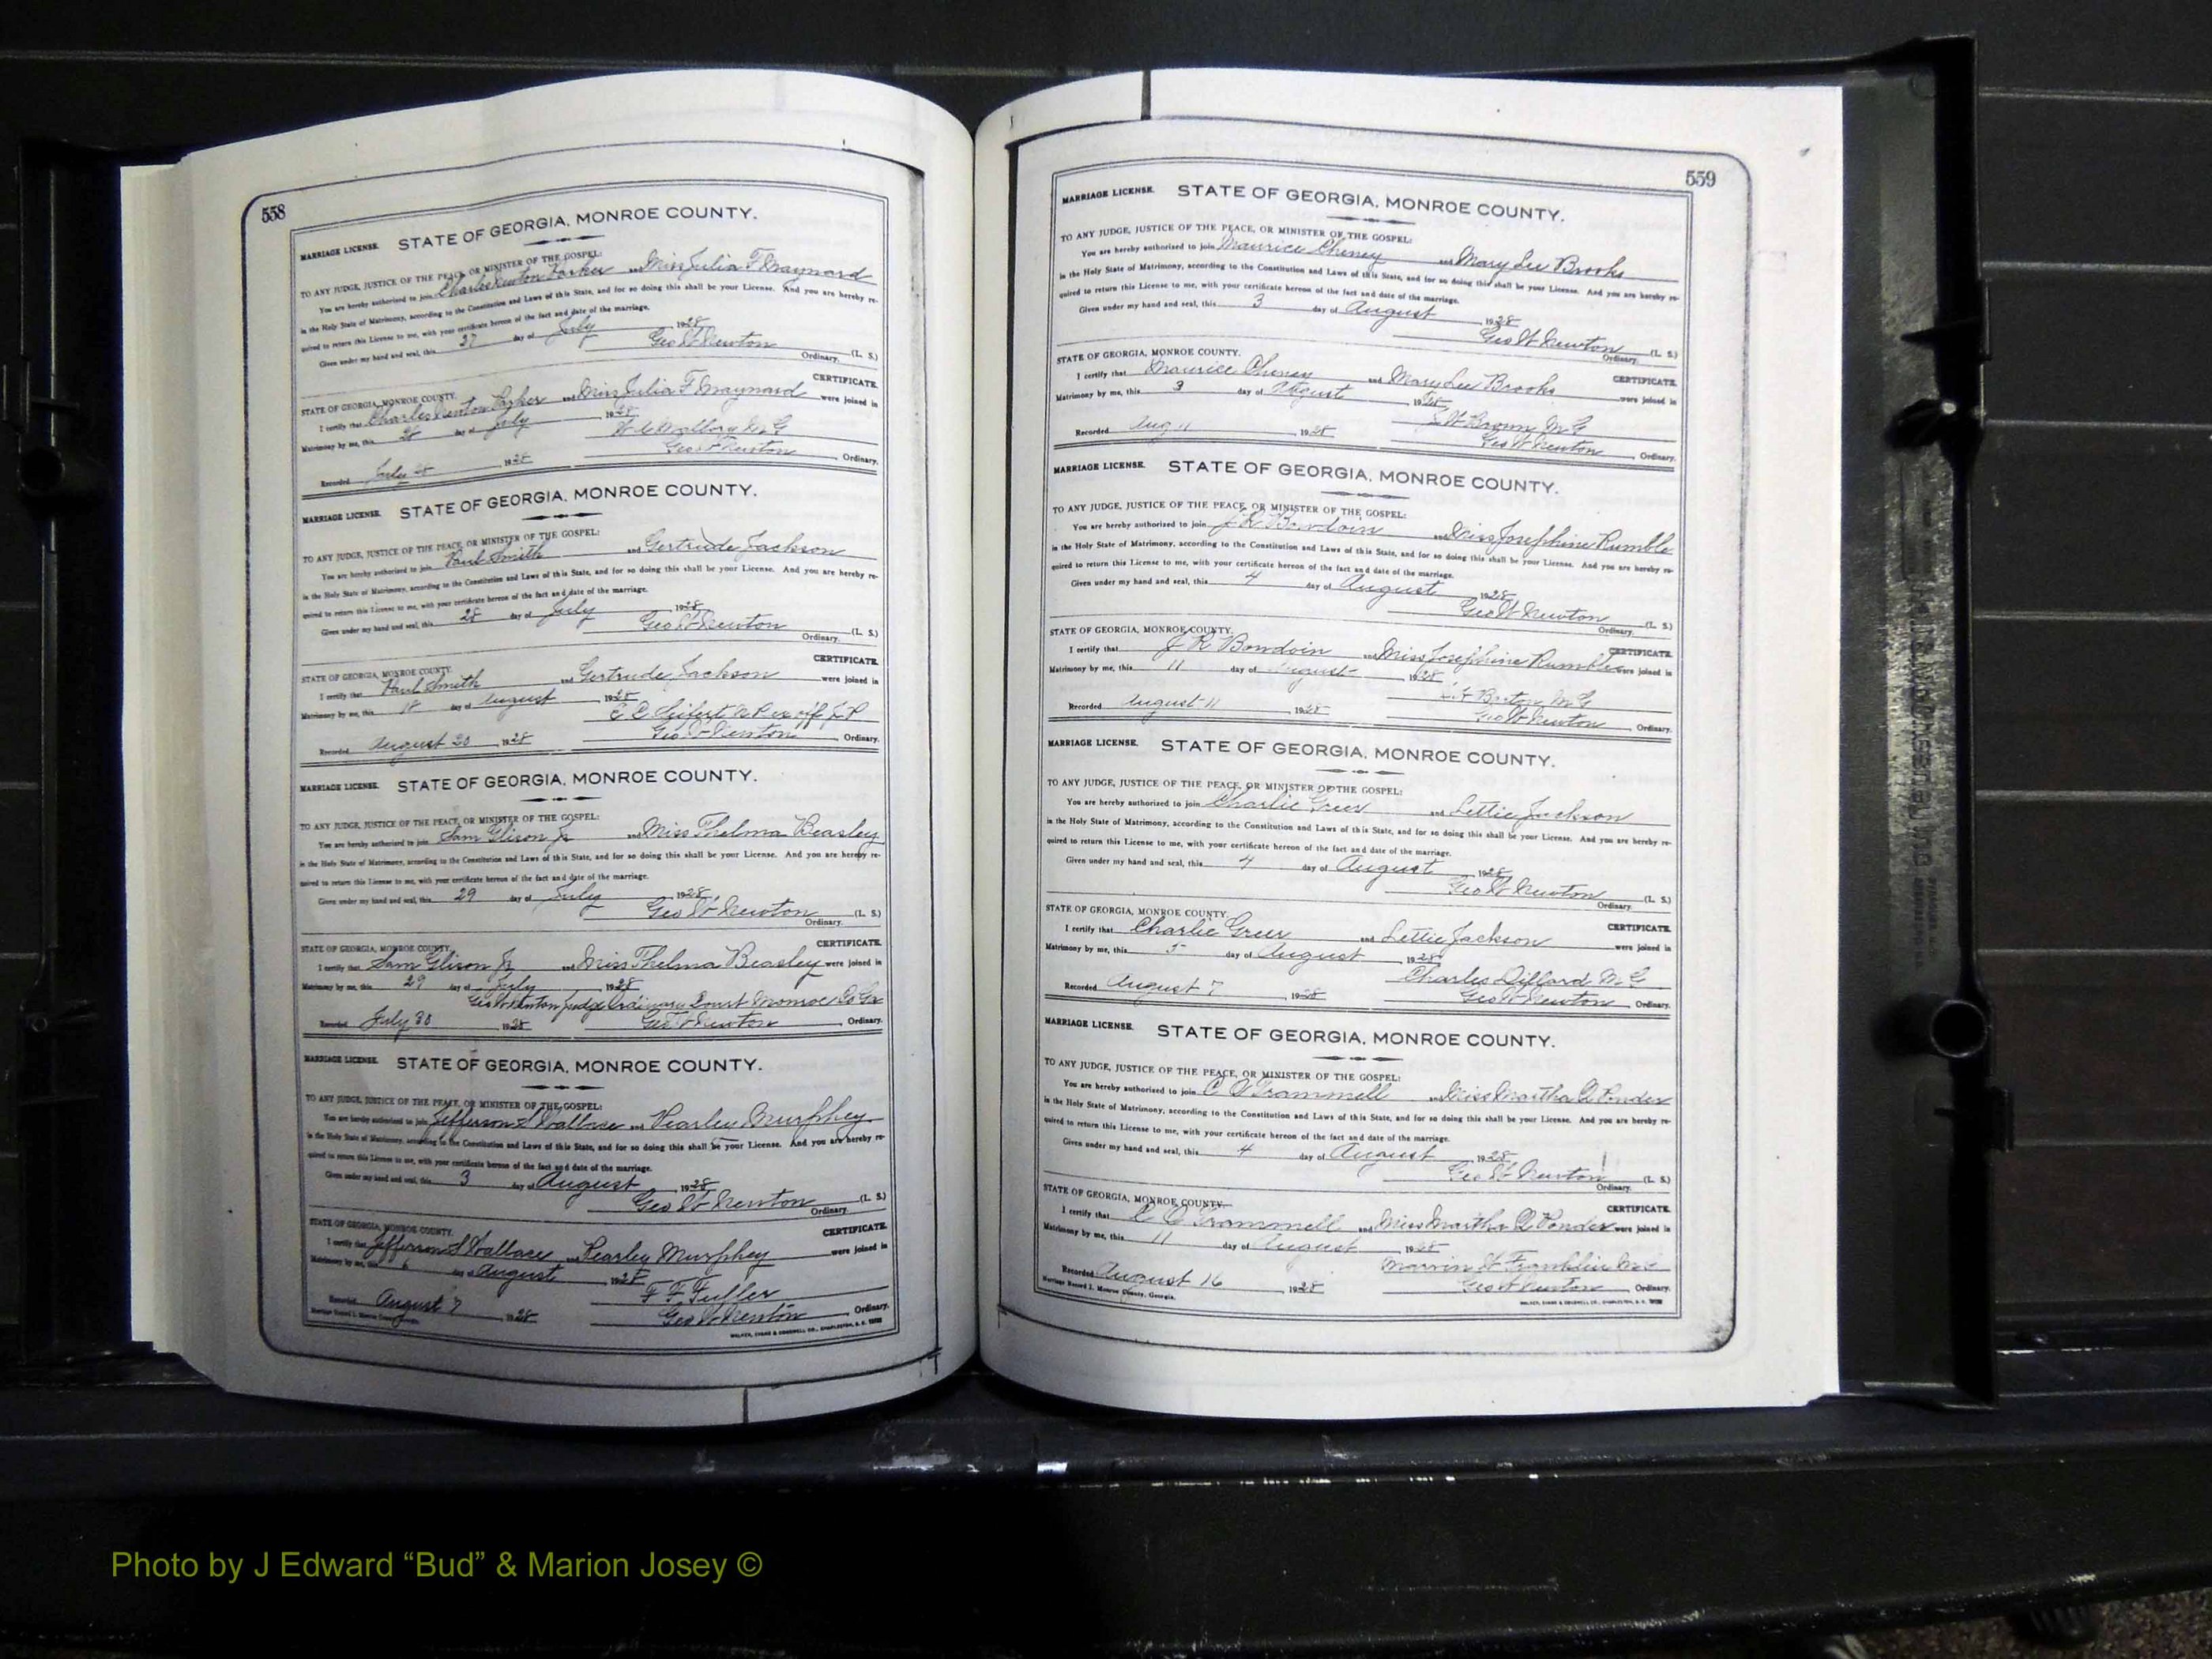 558
MARRIAGE LICENSE. STATE OF GEORGIA, MONROE COUNTY.
TO ANY JUDGE, JUSTICE OF THE PEACE, OR MINISTER OF THE GOSPEL:
You are hereby authorized to join Charles Newton Parker and Miss Julia F Maynard
in the Holy State of Matrimony, according to the Constitution and Laws of this State, and for so doing this shall be your License. And you are hereby re-
quired to return this License to me, with your certificate hereon of the fact and date of the marriage.
Given under my hand and seal, this 27 day of July 1928
Geo W Newton (L. S.)
Ordinary.
STATE OF GEORGIA, MONROE COUNTY. CERTIFICATE.
I certify that Charles Newton Parker and Miss Julia F Maynard were joined in
Matrimony by me, this 28 day of July 1928
W C Mallory M G
Recorded July 28 1928 Geo W Newton, Ordinary.
MARRIAGE LICENSE. STATE OF GEORGIA, MONROE COUNTY.
TO ANY JUDGE, JUSTICE OF THE PEACE, OR MINISTER OF THE GOSPEL:
You are hereby authorized to join Paul Smith and Gertrude Jackson
in the Holy State of Matrimony, according to the Constitution and Laws of this State, and for so doing this shall be your License. And you are hereby re-
quired to return this License to me, with your certificate hereon of the fact and date of the marriage.
Given under my hand and seal, this 28 day of July 1928
Geo W Newton (L. S.)
Ordinary.
STATE OF GEORGIA, MONROE COUNTY. CERTIFICATE.
I certify that Paul Smith and Gertrude Jackson were joined in
Matrimony by me, this 18 day of August 1928
E C Seifert N P ex off J P
Recorded August 20 1928 Geo W Newton, Ordinary.
MARRIAGE LICENSE. STATE OF GEORGIA, MONROE COUNTY.
TO ANY JUDGE, JUSTICE OF THE PEACE, OR MINISTER OF THE GOSPEL:
You are hereby authorized to join Sam Glison Jr and Miss Thelma Beasley
in the Holy State of Matrimony, according to the Constitution and Laws of this State, and for so doing this shall be your License. And you are hereby re-
quired to return this License to me, with your certificate hereon of the fact and date of the marriage.
Given under my hand and seal, this 29 day of July 1928
Geo W Newton (L. S.)
Ordinary.
STATE OF GEORGIA, MONROE COUNTY. CERTIFICATE.
I certify that Sam Glison Jr and Miss Thelma Beasley were joined in
Matrimony by me, this 29 day of July 1928
Geo W Newton Judge Ordinary Court Monroe Co Ga
Recorded July 30 1928 Geo W Newton, Ordinary.
MARRIAGE LICENSE. STATE OF GEORGIA, MONROE COUNTY.
TO ANY JUDGE, JUSTICE OF THE PEACE, OR MINISTER OF THE GOSPEL:
You are hereby authorized to join Jefferson S Wallace and Pearley Murphey
in the Holy State of Matrimony, according to the Constitution and Laws of this State, and for so doing this shall be your License. And you are hereby re-
quired to return this License to me, with your certificate hereon of the fact and date of the marriage.
Given under my hand and seal, this 3 day of August 1928
Geo W Newton (L. S.)
Ordinary.
STATE OF GEORGIA, MONROE COUNTY. CERTIFICATE.
I certify that Jefferson S Wallace and Pearley Murphey were joined in
Matrimony by me, this 6 day of August 1928
F F Fuller
Recorded August 7 1928 Geo W Newton, Ordinary.
Marriage Record J. Monroe County, Georgia. WALKER, EVANS & COGSWELL CO., CHARLESTON, S. C.
559
MARRIAGE LICENSE. STATE OF GEORGIA, MONROE COUNTY.
TO ANY JUDGE, JUSTICE OF THE PEACE, OR MINISTER OF THE GOSPEL:
You are hereby authorized to join Maurice Cheney and Mary Lee Brooks
in the Holy State of Matrimony, according to the Constitution and Laws of this State, and for so doing this shall be your License. And you are hereby re-
quired to return this License to me, with your certificate hereon of the fact and date of the marriage.
Given under my hand and seal, this 3 day of August 1928
Geo W Newton (L. S.)
Ordinary.
STATE OF GEORGIA, MONROE COUNTY. CERTIFICATE.
I certify that Maurice Cheney and Mary Lee Brooks were joined in
Matrimony by me, this 3 day of August 1928
W Brown M G
Recorded Aug 11 1928 Geo W Newton, Ordinary.
MARRIAGE LICENSE. STATE OF GEORGIA, MONROE COUNTY.
TO ANY JUDGE, JUSTICE OF THE PEACE, OR MINISTER OF THE GOSPEL:
You are hereby authorized to join J R Bowdoin and Miss Josephine Rumble
in the Holy State of Matrimony, according to the Constitution and Laws of this State, and for so doing this shall be your License. And you are hereby re-
quired to return this License to me, with your certificate hereon of the fact and date of the marriage.
Given under my hand and seal, this 4 day of August 1928
Geo W Newton (L. S.)
Ordinary.
STATE OF GEORGIA, MONROE COUNTY. CERTIFICATE.
I certify that J R Bowdoin and Miss Josephine Rumble were joined in
Matrimony by me, this 11 day of August 1928
Barton M G
Recorded August 11 1928 Geo W Newton, Ordinary.
MARRIAGE LICENSE. STATE OF GEORGIA, MONROE COUNTY.
TO ANY JUDGE, JUSTICE OF THE PEACE, OR MINISTER OF THE GOSPEL:
You are hereby authorized to join Charlie Greer and Lettie Jackson
in the Holy State of Matrimony, according to the Constitution and Laws of this State, and for so doing this shall be your License. And you are hereby re-
quired to return this License to me, with your certificate hereon of the fact and date of the marriage.
Given under my hand and seal, this 4 day of August 1928
Geo W Newton (L. S.)
Ordinary.
STATE OF GEORGIA, MONROE COUNTY. CERTIFICATE.
I certify that Charlie Greer and Lettie Jackson were joined in
Matrimony by me, this 5 day of August 1928
Charles Dillard M G
Recorded August 7 1928 Geo W Newton, Ordinary.
MARRIAGE LICENSE. STATE OF GEORGIA, MONROE COUNTY.
TO ANY JUDGE, JUSTICE OF THE PEACE, OR MINISTER OF THE GOSPEL:
You are hereby authorized to join C Q Trammell and Miss Martha Q Ponder
in the Holy State of Matrimony, according to the Constitution and Laws of this State, and for so doing this shall be your License. And you are hereby re-
quired to return this License to me, with your certificate hereon of the fact and date of the marriage.
Given under my hand and seal, this 4 day of August 1928
Geo W Newton (L. S.)
Ordinary.
STATE OF GEORGIA, MONROE COUNTY. CERTIFICATE.
I certify that C Q Trammell and Miss Martha Q Ponder were joined in
Matrimony by me, this 11 day of August 1928
Marvin W Franklin M G
Recorded August 16 1928 Geo W Newton Ordinary.
Marriage Record J. Monroe County, Georgia. WALKER, EVANS & COGSWELL CO., CHARLESTON, S. C.
Photo by J Edward “Bud” & Marion Josey ©